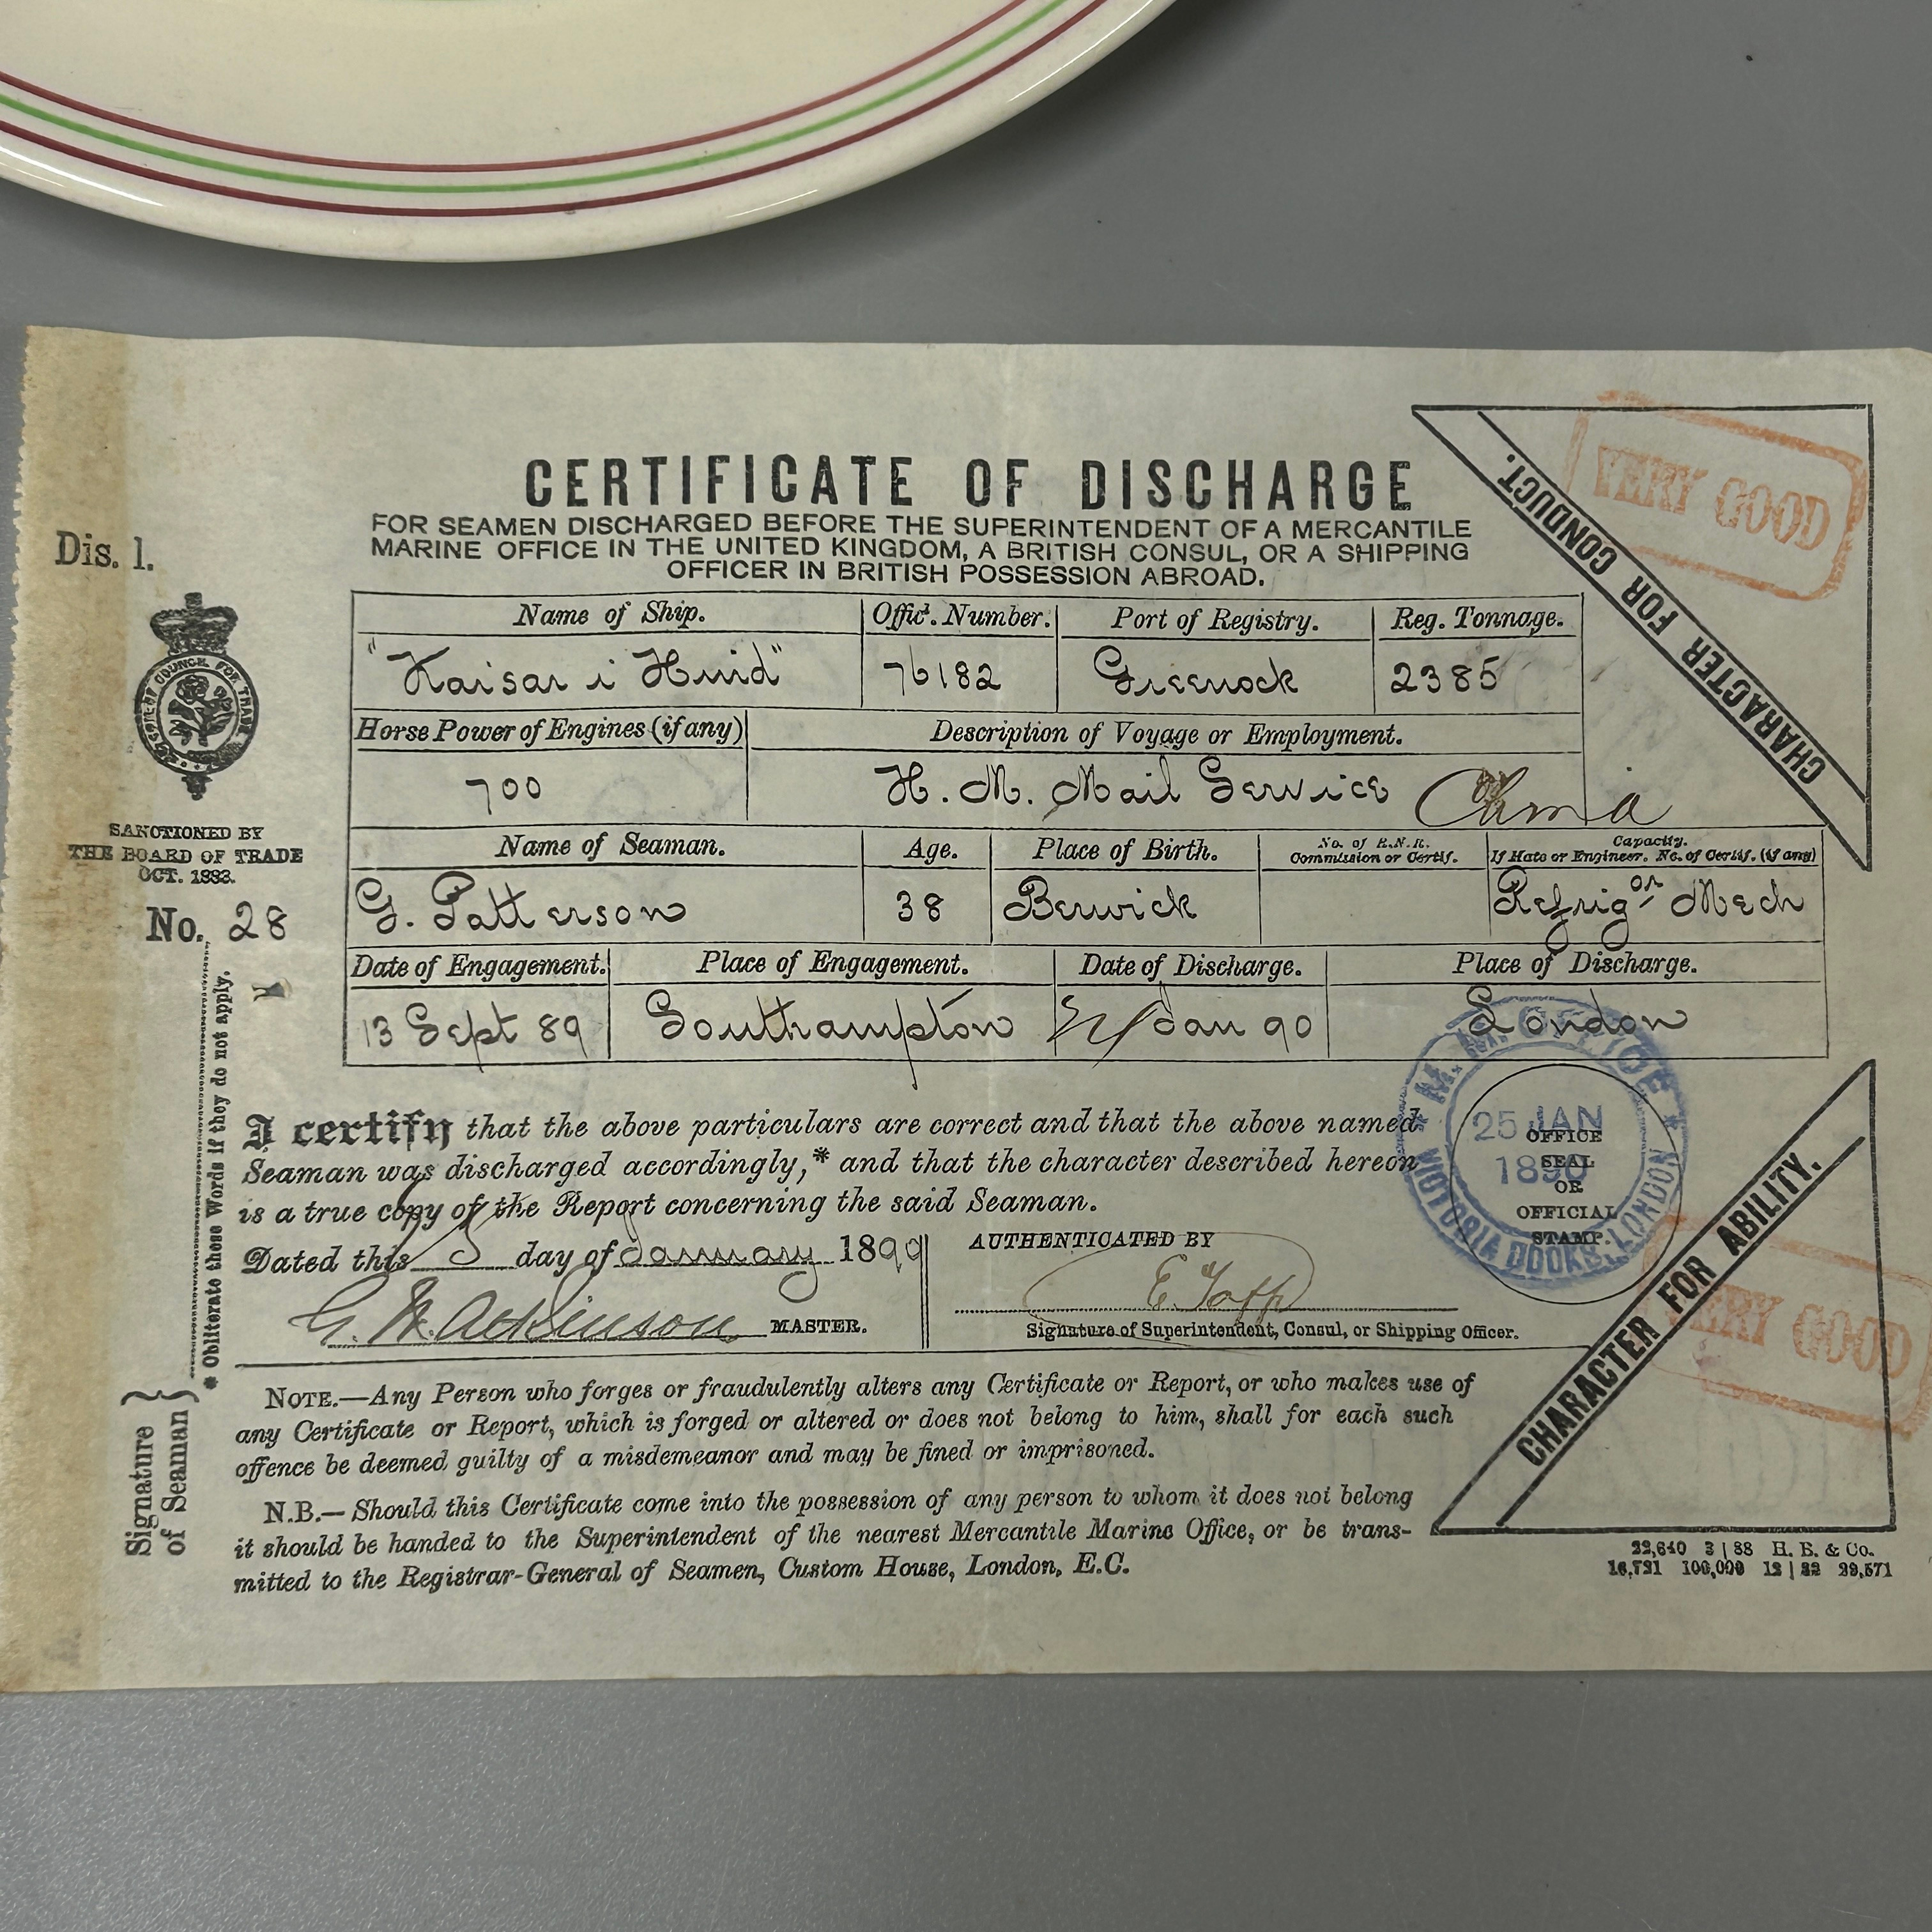 CERTIFICATE OF DISCHARGE
FOR SEAMEN DISCHARGED BEFORE THE SUPERINTENDENT OF A MERCANTILE
MARINE OFFICE IN THE UNITED KINGDOM, A BRITISH CONSUL, OR A SHIPPING
OFFICER IN BRITISH POSSESSION ABROAD.
Dis. 1.
SANCTIONED BY
THE BOARD OF TRADE
OCT. 1883.
No. 28
* Obliterate these Words if they do not apply.
Signature
of Seaman
CHARACTER FOR CONDUCT.
VERY GOOD
Name of Ship. Offic'. Number. Port of Registry. Reg. Tonnage.
"Kaisar i Hind" 76182 Greenock 2385
Horse Power of Engines (if any) Description of Voyage or Employment.
700 H. M. Mail Service China
Name of Seaman. Age. Place of Birth. No. of R.N.R. Commission or Certif. Capacity. If Mate or Engineer. No. of Certif. (if any)
G. Patterson 38 Berwick Refrig or Mech
Date of Engagement. Place of Engagement. Date of Discharge. Place of Discharge.
13 Sept 89 Southampton Jan 90 London
I certify that the above particulars are correct and that the above named
Seaman was discharged accordingly,* and that the character described hereon
is a true copy of the Report concerning the said Seaman.
Dated this day of January 1890
AUTHENTICATED BY
MASTER.
Signature of Superintendent, Consul, or Shipping Officer.
M. M. OFFICE
25 JAN
1890
VICTORIA DOCKS, LONDON
OFFICE
SEAL
OR
OFFICIAL
STAMP.
CHARACTER FOR ABILITY.
VERY GOOD
NOTE.—Any Person who forges or fraudulently alters any Certificate or Report, or who makes use of
any Certificate or Report, which is forged or altered or does not belong to him, shall for each such
offence be deemed guilty of a misdemeanor and may be fined or imprisoned.
N.B.— Should this Certificate come into the possession of any person to whom it does not belong
it should be handed to the Superintendent of the nearest Mercantile Marine Office, or be trans-
mitted to the Registrar-General of Seamen, Custom House, London, E.C.
H. B. & Co.